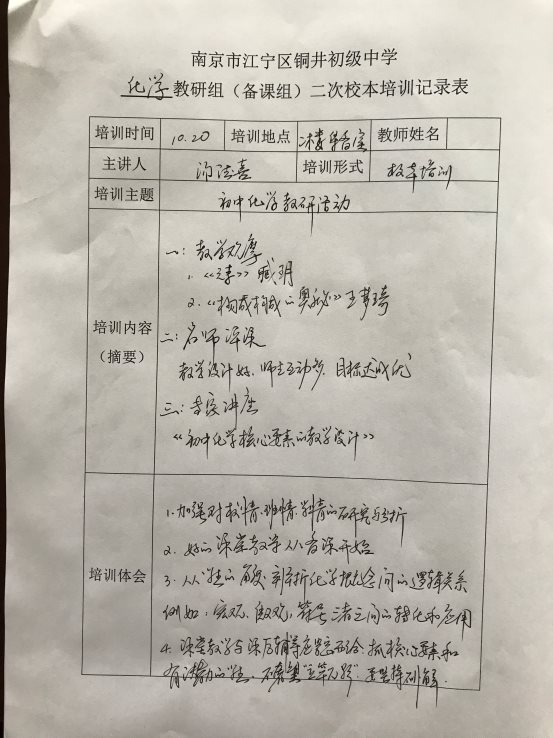 南京市江宁区铜井初级中学
化学教研组（备课组）二次校本培训记录表
培训时间 10.20 培训地点 教师姓名
主讲人 培训形式 校本培训
培训主题 初中化学教研活动
培训内容
（摘要）
一：教学观摩
1. 《元素》 臧玥
2. 《构成物质的奥秘》王梦琦
二：名师评课
教学设计好，师生互动多，目标达成优
三：专家讲座
《初中化学核心要素的教学设计》
培训体会
1.加强对校情、班情、学情的研究与分析
2. 好的课堂教学从备课开始
3. 从学生的角度，剖析化学概念间的逻辑关系
例如：宏观、微观、符号三者之间的转化和应用
4. 课堂教学与课后辅导应紧密结合 抓核心要素和
有潜力的学生，